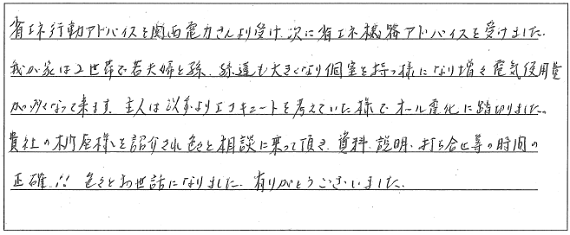 省エネ行動アドバイスを関西電力さんより受け、次に省エネ機器アドバイスを受けました。
我が家は2世帯で若夫婦と孫、孫達も大きくなり個室を持つ様になり増々電気使用量
が多くなって来ます。主人は以前よりエコキュートを考えていた様でオール電化に踏切りました。
貴社の 様を紹介され色々と相談に乗って頂き、資料、説明、打ち合せ等の時間の
正確!! 色々とお世話になりました。有りがとうございました。